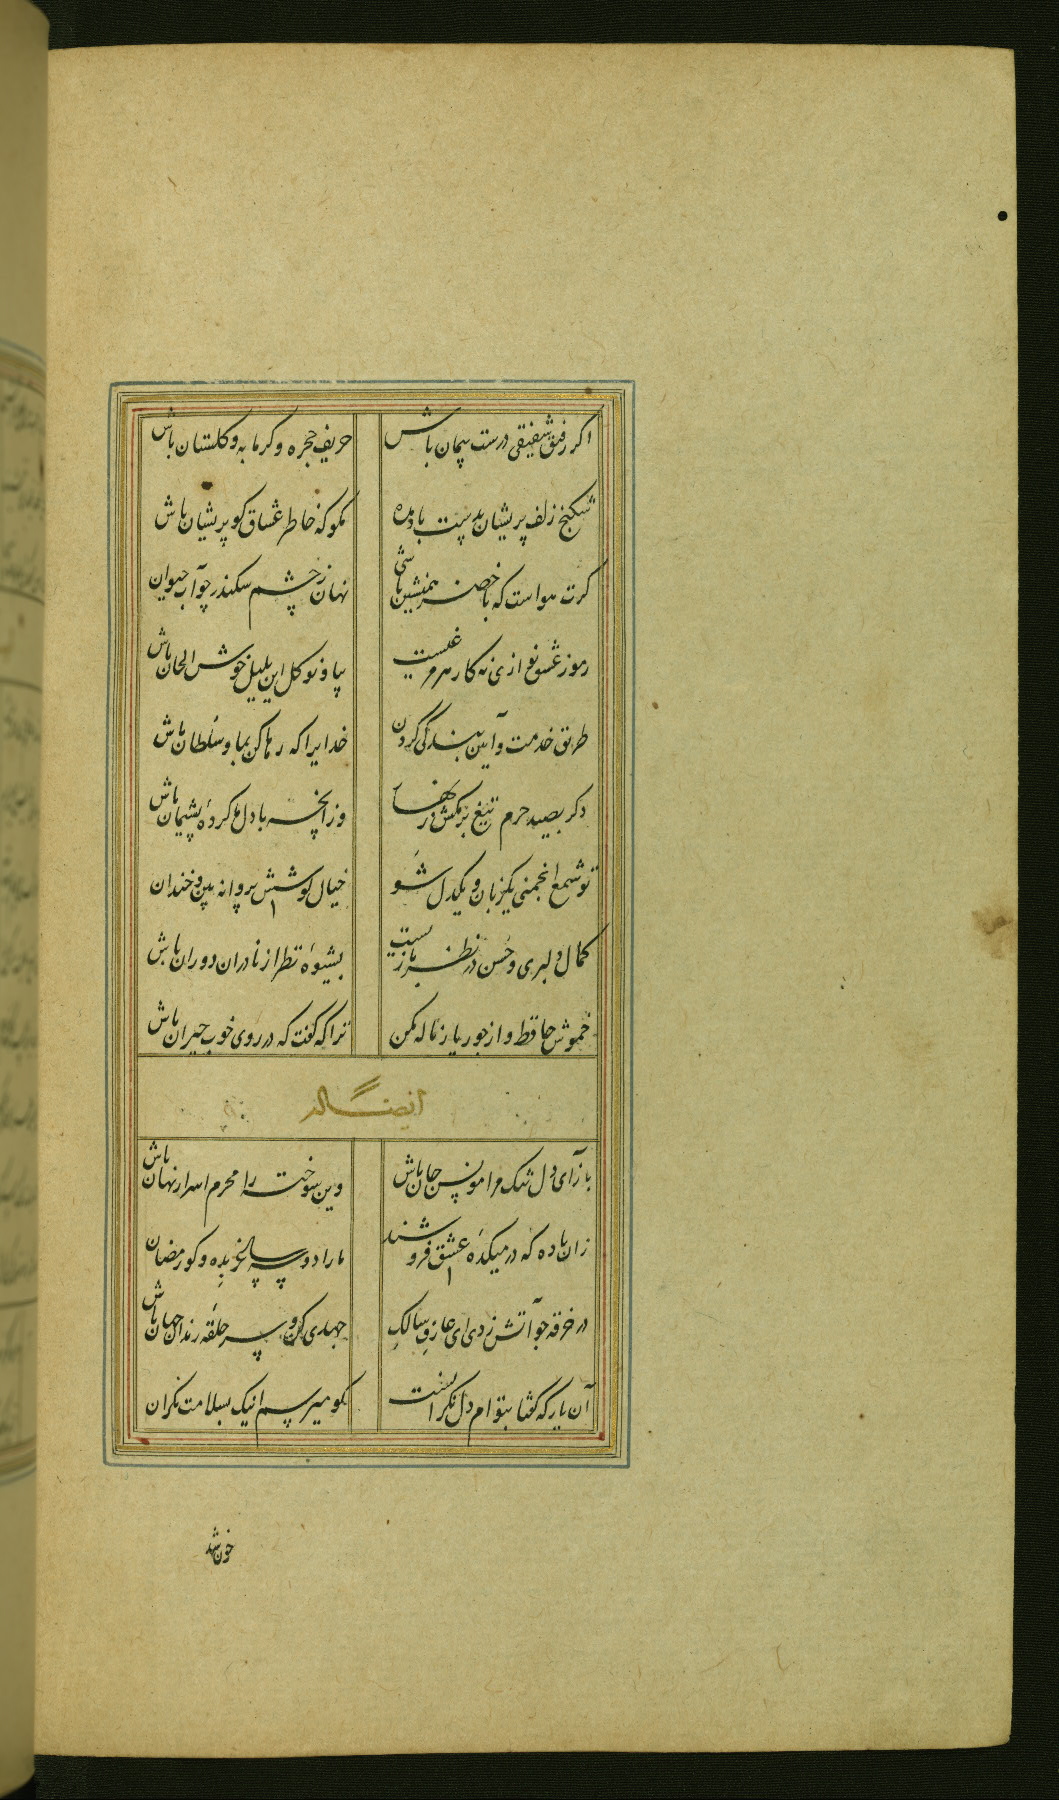 اکر رفیق شفیقی درست پیمان باش
حریف حجره و کرمابه و کلستان باش
شکنج زلف پریشان بدست باد مده
مکو که خاطر عشاق کو پریشان باش
کرت هواست که با خضر همنشین باشی
نهان ز چشم سکندر چو آب حیوان باش
رموز عشق نوازی نه کار هر مرغیست
بیا و نوکل این بلبل خوش الحان باش
طریق خدمت و آیین بندگی کردن
خدایرا که رها کن بما و سلطان باش
دکر بصید حرم تیغ برمکش زنهار
وز آنچه با دل ما کرده پشیمان باش
تو شمع انجمنی یکزبان و یکدل شو
خیال کوشش پروانه بین و خندان باش
کمال دلبری و حسن در نظر بازیست
بشیوه نظر از نادران دوران باش
خموش حافظ و از جور یار ناله مکن
ترا که کفت که در روی خوب حیران باش
ایضاله
باز آی دل تنک مرا مونس جان باش
وین سوخته را محرم اسرار نهان باش
زان باده که در میکده عشق فروشند
ما را دو سه ساغر بده و کو رمضان باش
در خرقه چو آتش زدی ای عارف سالک
جهدی کن و سر حلقه رندان جهان باش
آن یار که کفتا بتوام دل نکرانست
کو میرسم اینک بسلامت نکران
خون شد